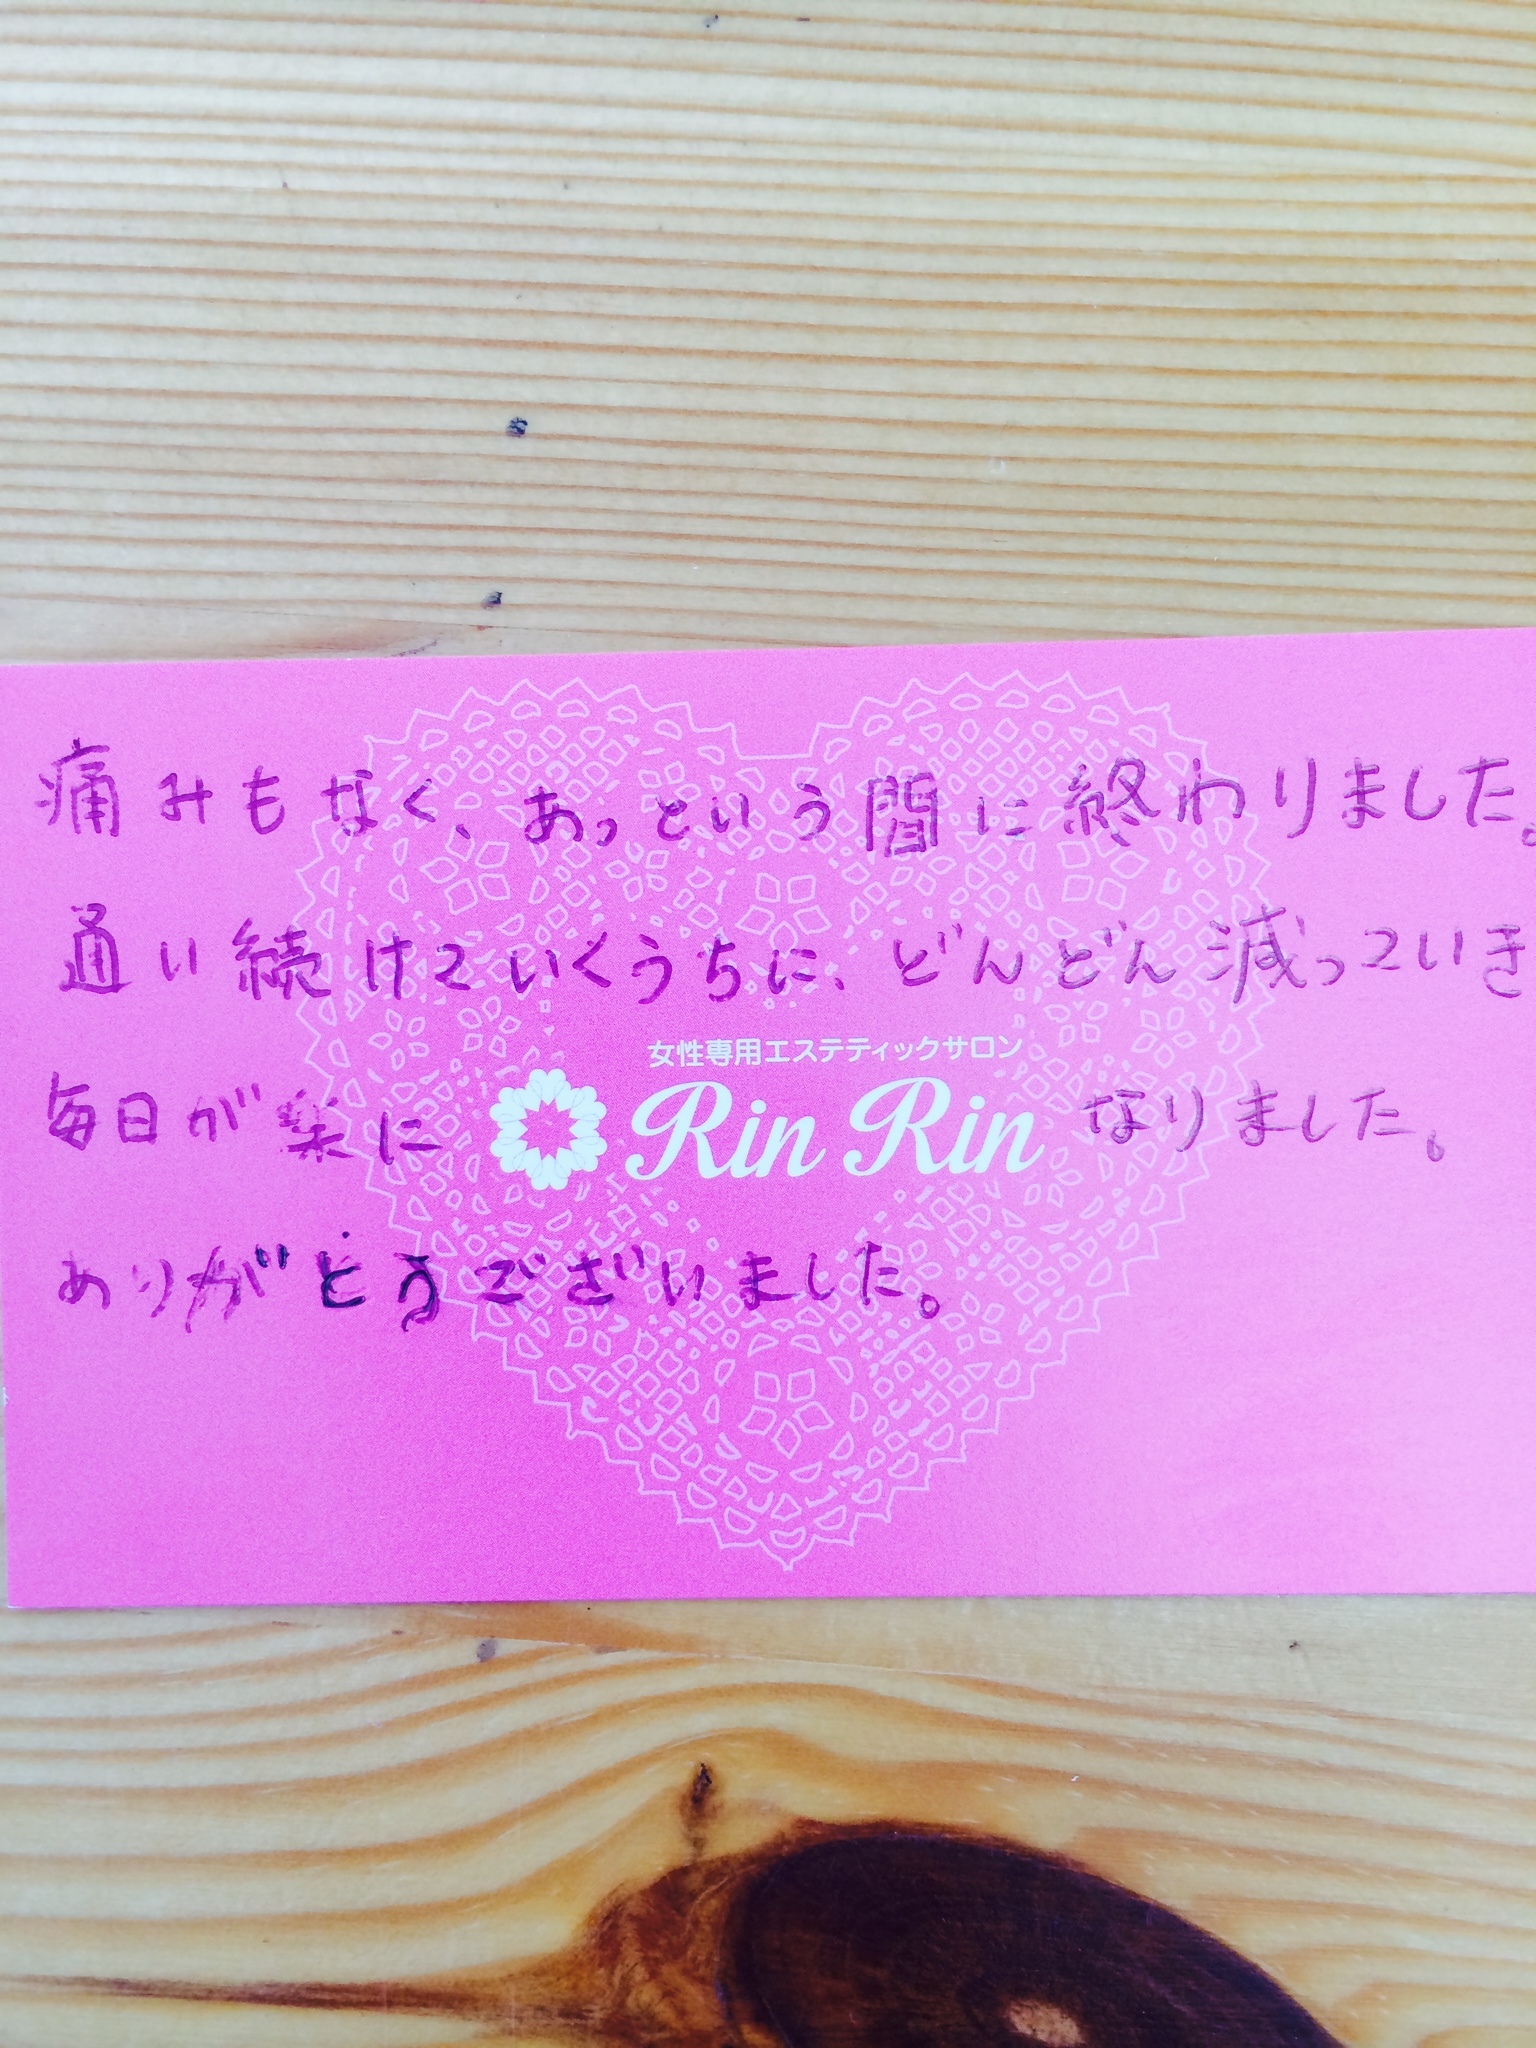 痛みもなく、あっという間に終わりました。
通い続けていくうちに、どんどん減っていき
女性専用エステティックサロン
毎日が楽に Rin Rin なりました。
ありがとうございました。